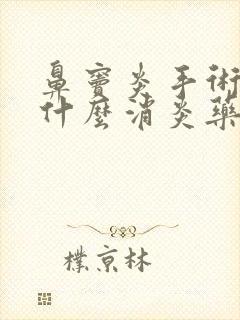 鼻竇炎手術
什麼消炎藥
樸京林